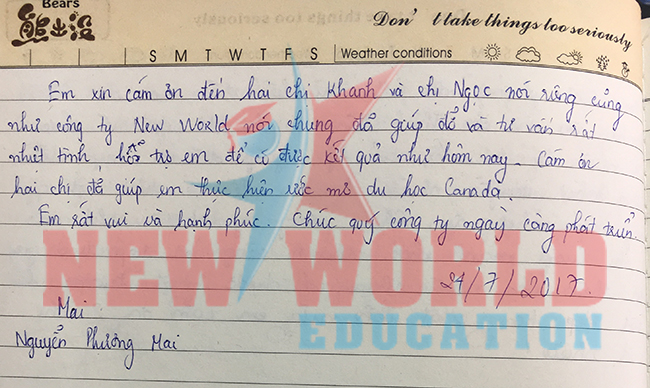 Bears
熊出没
Don't take things too seriously
S M T W T F S Weather conditions
Em xin cám ơn đến hai chị Khanh và chị Ngọc nói riêng cũng
như công ty New World nói chung đã giúp đỡ và tư vấn rất
nhiệt tình hỗ trợ em để có được kết quả như hôm nay. Cám ơn
hai chị đã giúp em thực hiện ước mơ du học Canada.
Em rất vui và hạnh phúc. Chúc quý công ty ngày càng phát triển.
NEW WORLD
24/7/2017
EDUCATION
Mai
Nguyễn Phương Mai